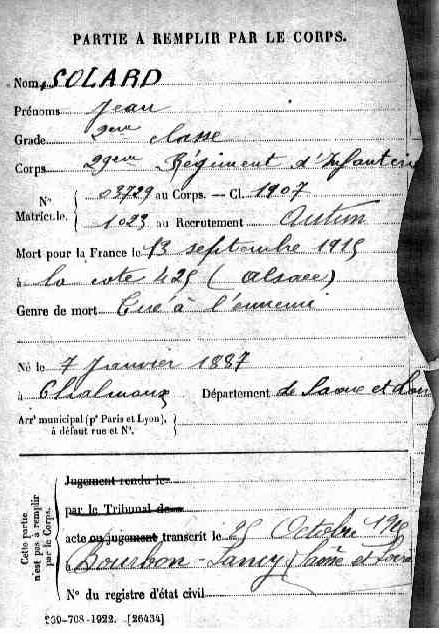 PARTIE À REMPLIR PAR LE CORPS.
Nom SOLARD
Prénoms Jean
Grade 2ème classe
Corps 29ème Régiment d'Infanterie
N° Matricule. 03729 au Corps. — Cl. 1907
1023 au Recrutement Autun
Mort pour la France le 13 septembre 1915
à la cote 425 (Alsace)
Genre de mort Tué à l'ennemi
Né le 7 Janvier 1887
à Chalmoux Département de Saone et Loire
Arrt municipal (pr Paris et Lyon), à défaut rue et N°.
Cette partie n'est pas à remplir par le Corps.
Jugement rendu le
par le Tribunal de
acte ou jugement transcrit le 25 Octobre 1915
à Bourbon-Lancy (Saône et Loire
N° du registre d'état civil
-708-1922. [26434]